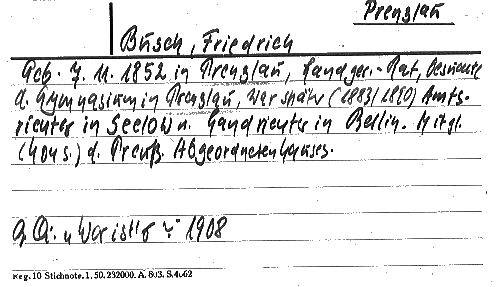 Prenzlau
Busch, Friedrich
Geb. 7. 11. 1852 in Prenzlau, Landger.-Rat, besuchte
d. Gymnasium in Prenzlau, war später (1883/1890) Amts-
richter in Seelow u. Landrichter in Berlin. Mitgl.
(kons.) d. Preuß. Abgeordnetenhauses.
Wer ist's 1908
Reg. 10 Stichnote. 1. 50. 232000. A. 803. S. 4062